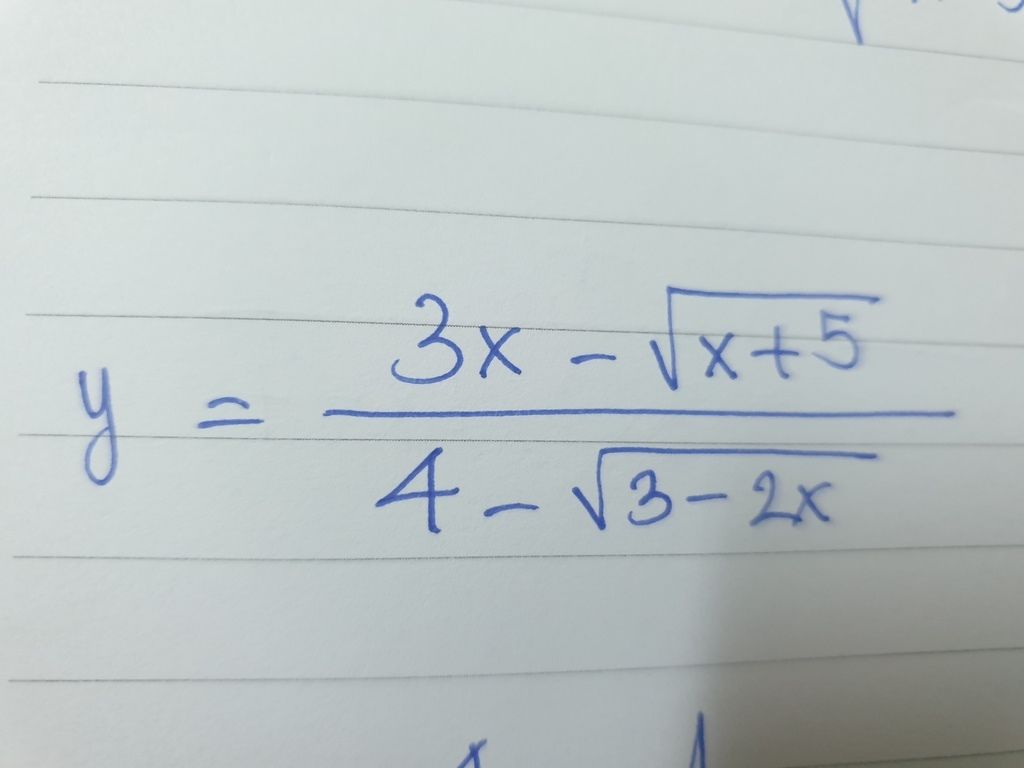 y = \frac{3x - \sqrt{x+5}}{4 - \sqrt{3-2x}}